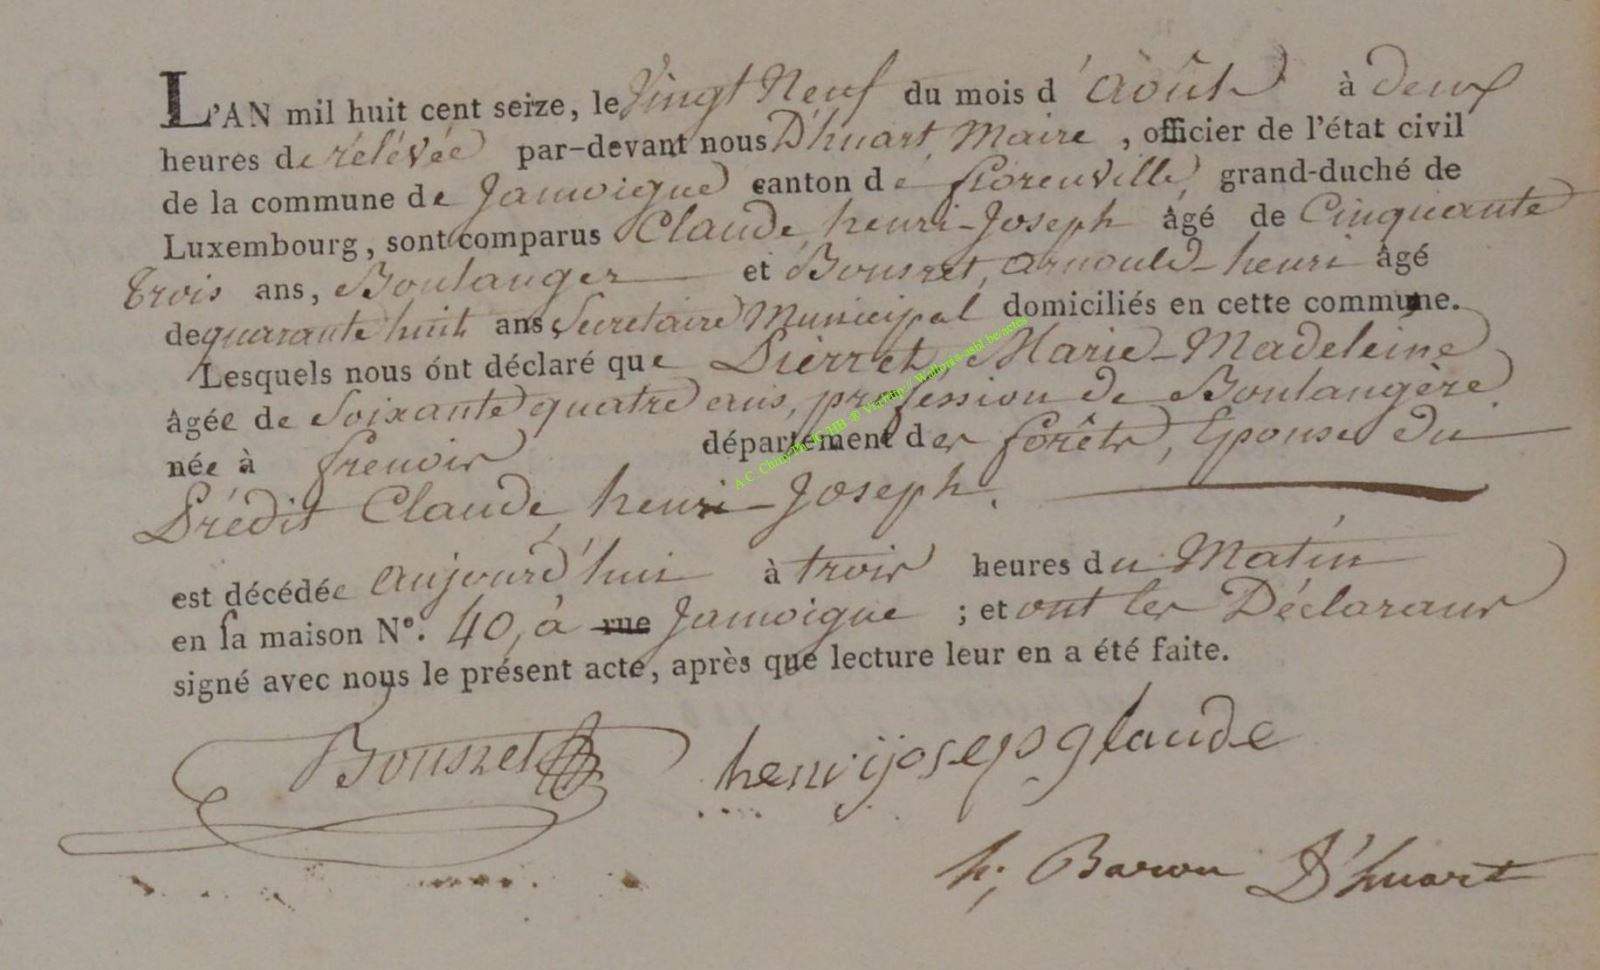 L'AN mil huit cent seize, le Vingt Neuf du mois d'Août à deux
heures de rélévée par-devant nous D'huart, Maire, officier de l'état civil
de la commune de Jamoigne canton de florenville, grand-duché de
Luxembourg, sont comparus Claude, henri-Joseph âgé de Cinquante
trois ans, Boulanger et Bousret, arnould-henri âgé
de quarante huit ans Secretaire Municipal domiciliés en cette commune.
Lesquels nous ont déclaré que Pierret, Marie-Madeleine
âgée de Soixante quatre ans, profession de Boulangère,
née à frenoir département des forêts, Epouse du
Prédit Claude, henri-Joseph.
est décédée aujourd'hui à trois heures du Matin
en sa maison Nº. 40, à rue Jamoigne ; et ont les Déclarans
signé avec nous le présent acte, après que lecture leur en a été faite.
Bousret henrijosep glaude
h; Baron D'huart